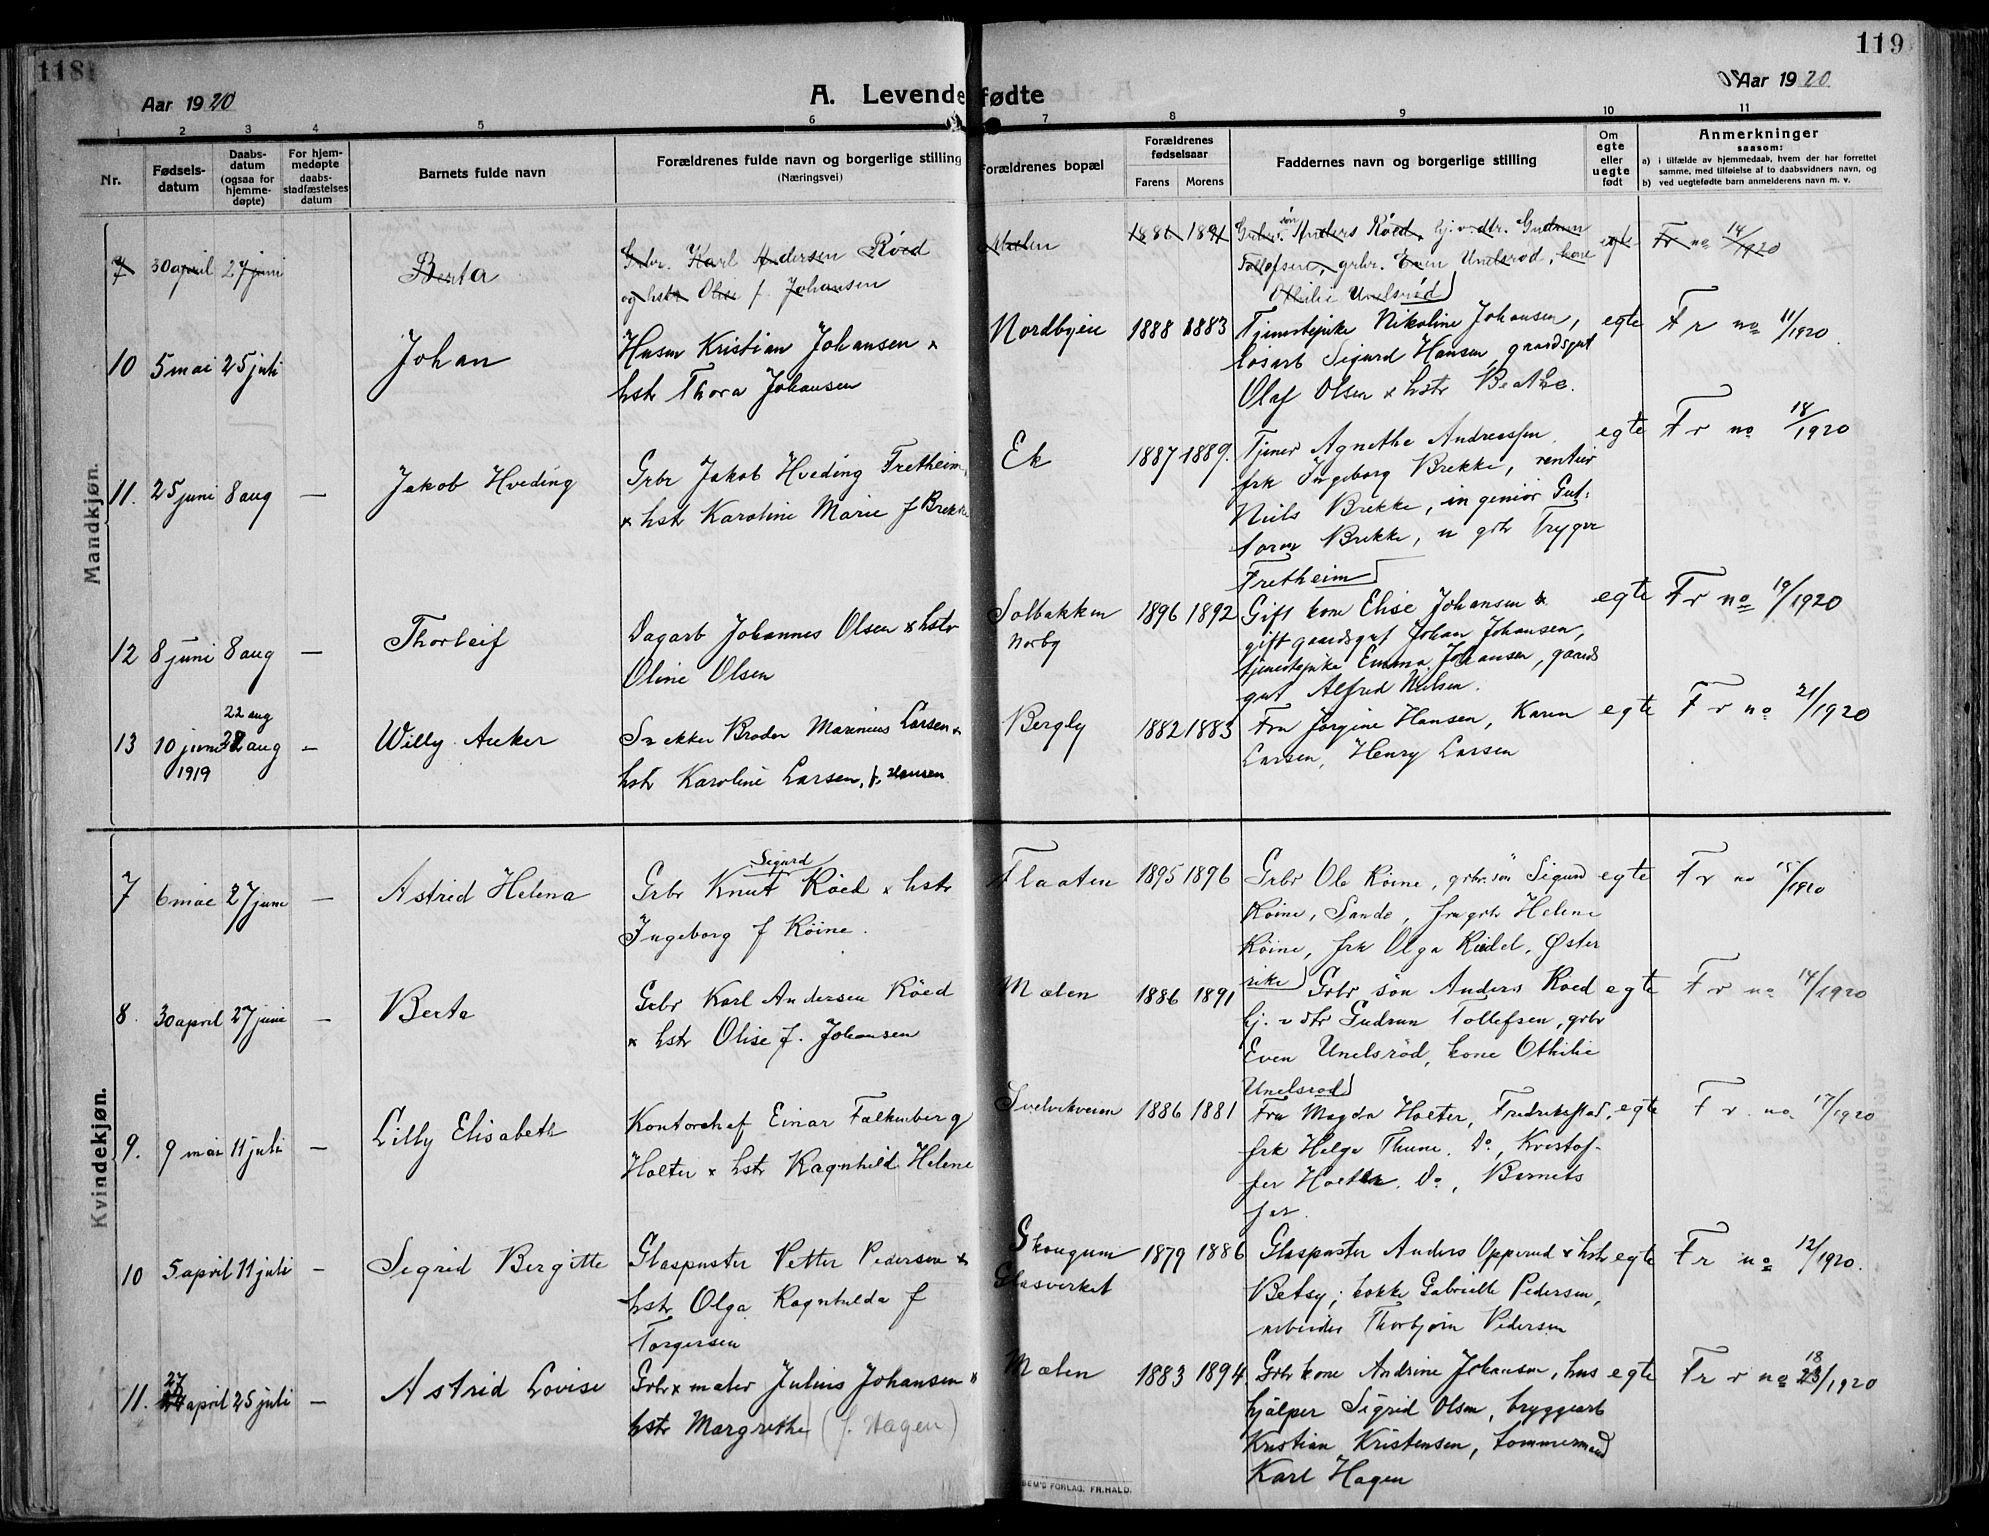 118
119
Aar 1920
A. Levendefødte
Aar 1920
1 2 3 4 5 6 7 8 9 10 11
Nr.
Fødsels-
datum
Daabs-
datum
(ogsaa for
hjemme-
døpte)
For hjem-
medøpte
daabs-
stadfæstelses
datum
Barnets fulde navn
Forældrenes fulde navn og borgerlige stilling
(Næringsvei)
Forældrenes bopæl
Forældrenes
fødselsaar
Farens Morens
Faddernes navn og borgerlige stilling
Om
egte
eller
uegte
født
Anmerkninger
saasom:
a) i tilfælde av hjemmedaab, hvem der har forrettet
samme, med tilføielse af to daabsvidners navn, og
b) ved uegtefødte barn anmelderens navn m. v.
Mandkjøn.
7 30 april 27 juni Berta
Grbr. Karl Andersen Röed
og hstr Olise f. Johansen
Mælen 1886 1891
Grbr. sön Anders Röed, hj.v. dtr. Gudrun
Tollefsen, grbr. Even Unelsröd, kone
Othilie Unelsröd
egte Fr no 14/1920
10 5 mai 25 juli Johan
Husm Kristian Johansen x
hstr Thora Johansen
Nordbyeie 1888 1883
Tjenestepike Nikoline Johansen,
losarb Sigurd Hansen, gaardsgut
Olaf Olsen x hstr Beathe.
egte Fr no 11/1920.
11. 25 juni 8 aug — Jakob Hveding
Grbr Jakob Hveding Fretheim
x hst Karoline Marie f Brekke
Ek 1887 1889.
Tjener Agnethe Andreassen
frk Ingeborg Brekke, rentier
Niels Brekke, ingeniør Gut-
torm Brekke, u grbr Trygve
Fretheim
egte Fr no 18/1920
12 8 juni 8 aug — Thorleif
Dagarb Johannes Olsen x hstr
Oline Olsen
Solbakken
Norby
1896 1892
Gift kone Elise Johansen x
gift gaardsgut Johan Johansen,
tjenestepike Emma Johansen, gaards
gut Alfred Nielsen.
egte Fr no 19/1920
13 10 juni 1919 22 aug — Willy Anker
Snekker Broder Marinius Larsen x
hstr Karoline Larsen, f. Hansen.
Bergly 1882 1883
Fru Jörgine Hansen, Karen
Larsen, Henry Larsen
egte Fr no 21/1920
Kvindekjøn.
7 6 mai 27 juni — Astrid Helena
Grbr Knut Sigurd Röed x hstr
Ingeborg f Röine.
Flaaten 1895 1896
Grbr Ole Röine, grbr.sön Sigurd
Röine, Sande, fru grbr Helene
Röine, frk Olga Riddel, Öster
rike
egte Fr no 15/1920
8. 30 april 27 juni — Berta
Grbr Karl Andersen Röed
x hstr Olise f. Johansen
Mælen 1886 1891
Grbr sön Anders Röed
hj. v dtr Gudrun Tollefsen, grbr
Even Unelsröd, kone Othilie
Unelsröd
egte Fr no 14/1920
9. 9 mai 11 juli — Lilly Elisabeth
Kontorchef Einar Falkenberg
Holter x hstr Ragnhild Helene
Svelvikveien 1886 1881
Fru Magda Holter, Fredrikstad,
frk Helga Thune. Do, Kristof-
fer Holter. Do, Barnets
far.
egte Fr. no 17/1920
10 5 april 11 juli — Sigrid Bergitte
Glaspuster Petter Pedersen x
hstr Olga Ragnhilda f
Torgersen
Skougum
Glasverket
1879 1886
Glaspuster Anders Opperud x hstr
Betsy; kokke Gabrielle Pedersen,
arbeider Thorbjörn Pedersen
egte Fr no 12/1920.
11. 27 april 25 juli — Astrid Lovise
Grbr x maler Julius Johansen x
hstr Margrethe (f. Hagen)
Mælen 1883 1894
Grbr kone Andrine Johansen, hus
hjälper Sigrid Olsen, bryggearb
Kristian Kristensen, tømmermand
Karl Hagen
egte Fr no 13/1920
FORLAG. FR. HALD.